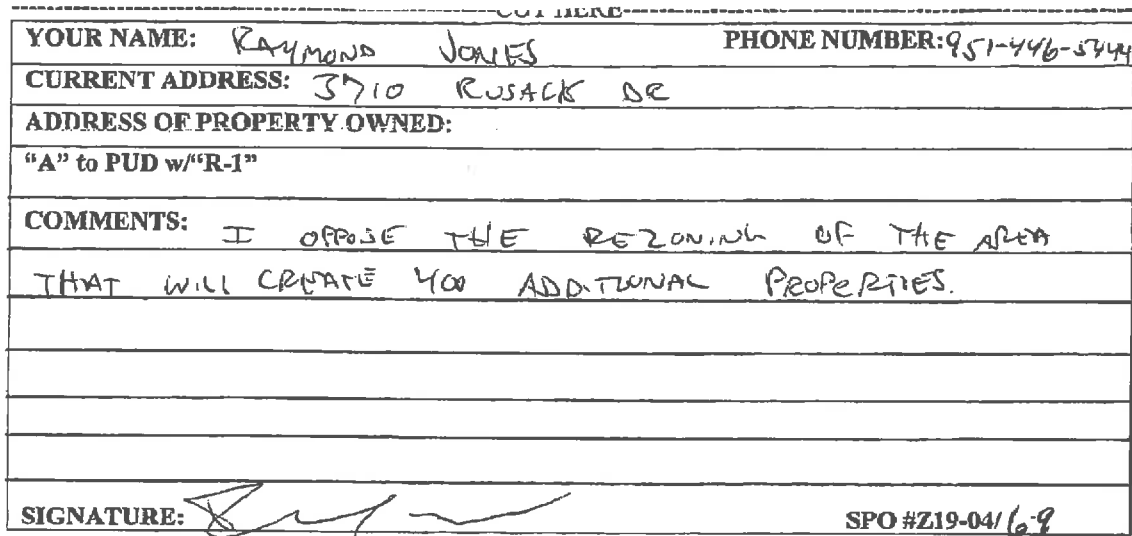 CUT HERE
YOUR NAME: RAYMOND JONES PHONE NUMBER: 951-446-5444
CURRENT ADDRESS: 3710 RUSACK DR
ADDRESS OF PROPERTY OWNED:
“A” to PUD w/“R-1”
COMMENTS: I OPPOSE THE REZONING OF THE AREA
THAT WILL CREATE 400 ADDITIONAL PROPERTIES.
SIGNATURE:
SPO #Z19-04/